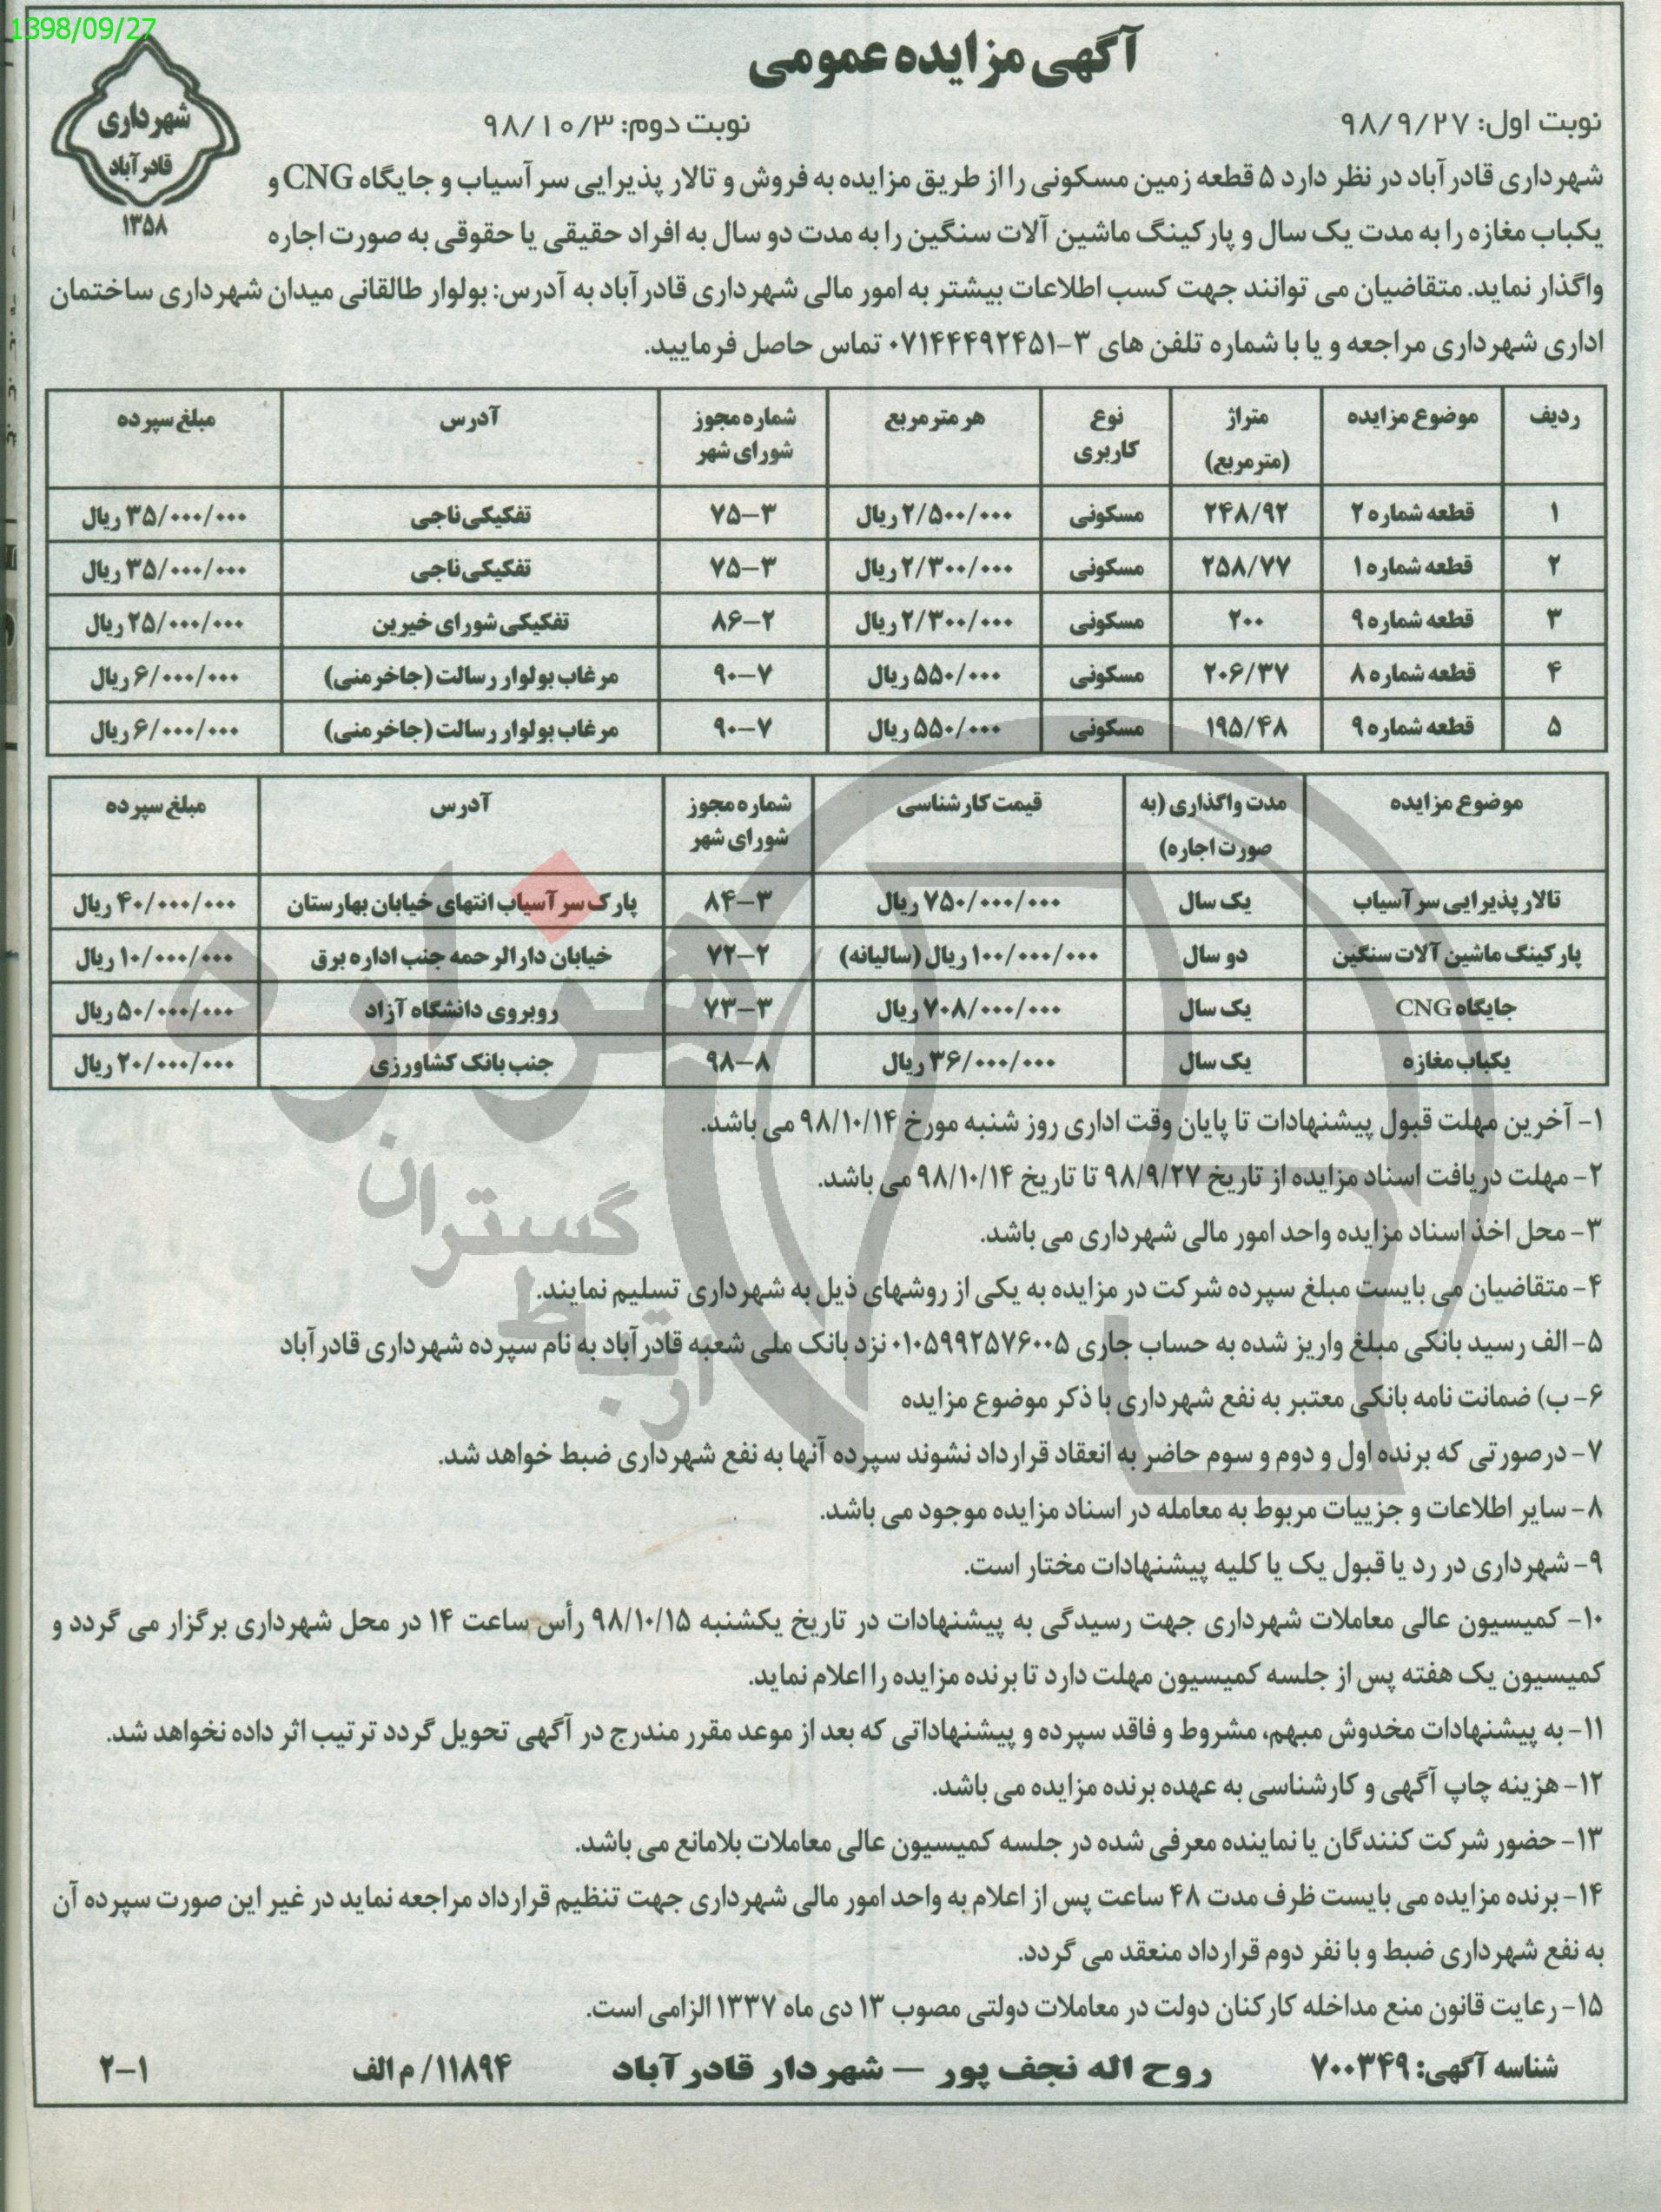 1398/09/27
آگهی مزایده عمومی
شهرداری
قادرآباد
۱۳۵۸
نوبت اول: ۹۸/۹/۲۷
نوبت دوم: ۹۸/۱۰/۳
شهرداری قادرآباد در نظر دارد ۵ قطعه زمین مسکونی را از طریق مزایده به فروش و تالار پذیرایی سر آسیاب و جایگاه CNG و
یکباب مغازه را به مدت یک سال و پارکینگ ماشین آلات سنگین را به مدت دو سال به افراد حقیقی یا حقوقی به صورت اجاره
واگذار نماید. متقاضیان می توانند جهت کسب اطلاعات بیشتر به امور مالی شهرداری قادرآباد به آدرس: بولوار طالقانی میدان شهرداری ساختمان
اداری شهرداری مراجعه و یا با شماره تلفن های ۳-۰۷۱۴۴۴۹۲۴۵۱ تماس حاصل فرمایید.
ردیف | موضوع مزایده | متراژ (مترمربع) | نوع کاربری | هر مترمربع | شماره مجوز شورای شهر | آدرس | مبلغ سپرده
۱ | قطعه شماره ۲ | ۲۴۸/۹۲ | مسکونی | ۲/۵۰۰/۰۰۰ ریال | ۷۵-۳ | تفکیکی ناجی | ۳۵/۰۰۰/۰۰۰ ریال
۲ | قطعه شماره ۱ | ۲۵۸/۷۷ | مسکونی | ۲/۳۰۰/۰۰۰ ریال | ۷۵-۳ | تفکیکی ناجی | ۳۵/۰۰۰/۰۰۰ ریال
۳ | قطعه شماره ۹ | ۲۰۰ | مسکونی | ۲/۳۰۰/۰۰۰ ریال | ۸۶-۲ | تفکیکی شورای خیرین | ۲۵/۰۰۰/۰۰۰ ریال
۴ | قطعه شماره ۸ | ۲۰۶/۳۷ | مسکونی | ۵۵۰/۰۰۰ ریال | ۹۰-۷ | مرغاب بولوار رسالت (جاخرمنی) | ۶/۰۰۰/۰۰۰ ریال
۵ | قطعه شماره ۹ | ۱۹۵/۴۸ | مسکونی | ۵۵۰/۰۰۰ ریال | ۹۰-۷ | مرغاب بولوار رسالت (جاخرمنی) | ۶/۰۰۰/۰۰۰ ریال
موضوع مزایده | مدت واگذاری (به صورت اجاره) | قیمت کارشناسی | شماره مجوز شورای شهر | آدرس | مبلغ سپرده
تالار پذیرایی سر آسیاب | یک سال | ۷۵۰/۰۰۰/۰۰۰ ریال | ۸۴-۳ | پارک سر آسیاب انتهای خیابان بهارستان | ۴۰/۰۰۰/۰۰۰ ریال
پارکینگ ماشین آلات سنگین | دو سال | ۱۰۰/۰۰۰/۰۰۰ ریال (سالیانه) | ۷۲-۲ | خیابان دارالرحمه جنب اداره برق | ۱۰/۰۰۰/۰۰۰ ریال
جایگاه CNG | یک سال | ۷۰۸/۰۰۰/۰۰۰ ریال | ۷۳-۳ | روبروی دانشگاه آزاد | ۵۰/۰۰۰/۰۰۰ ریال
یکباب مغازه | یک سال | ۳۶/۰۰۰/۰۰۰ ریال | ۹۸-۸ | جنب بانک کشاورزی | ۲۰/۰۰۰/۰۰۰ ریال
۱- آخرین مهلت قبول پیشنهادات تا پایان وقت اداری روز شنبه مورخ ۹۸/۱۰/۱۴ می باشد.
۲- مهلت دریافت اسناد مزایده از تاریخ ۹۸/۹/۲۷ تا تاریخ ۹۸/۱۰/۱۴ می باشد.
۳- محل اخذ اسناد مزایده واحد امور مالی شهرداری می باشد.
۴- متقاضیان می بایست مبلغ سپرده شرکت در مزایده به یکی از روشهای ذیل به شهرداری تسلیم نمایند.
۵- الف رسید بانکی مبلغ واریز شده به حساب جاری ۰۱۰۵۹۹۲۵۷۶۰۰۵ نزد بانک ملی شعبه قادرآباد به نام سپرده شهرداری قادرآباد
۶- ب) ضمانت نامه بانکی معتبر به نفع شهرداری با ذکر موضوع مزایده
۷- درصورتی که برنده اول و دوم و سوم حاضر به انعقاد قرارداد نشوند سپرده آنها به نفع شهرداری ضبط خواهد شد.
۸- سایر اطلاعات و جزییات مربوط به معامله در اسناد مزایده موجود می باشد.
۹- شهرداری در رد یا قبول یک یا کلیه پیشنهادات مختار است.
۱۰- کمیسیون عالی معاملات شهرداری جهت رسیدگی به پیشنهادات در تاریخ یکشنبه ۹۸/۱۰/۱۵ رأس ساعت ۱۴ در محل شهرداری برگزار می گردد و
کمیسیون یک هفته پس از جلسه کمیسیون مهلت دارد تا برنده مزایده را اعلام نماید.
۱۱- به پیشنهادات مخدوش مبهم، مشروط و فاقد سپرده و پیشنهاداتی که بعد از موعد مقرر مندرج در آگهی تحویل گردد ترتیب اثر داده نخواهد شد.
۱۲- هزینه چاپ آگهی و کارشناسی به عهده برنده مزایده می باشد.
۱۳- حضور شرکت کنندگان یا نماینده معرفی شده در جلسه کمیسیون عالی معاملات بلامانع می باشد.
۱۴- برنده مزایده می بایست ظرف مدت ۴۸ ساعت پس از اعلام به واحد امور مالی شهرداری جهت تنظیم قرارداد مراجعه نماید در غیر این صورت سپرده آن
به نفع شهرداری ضبط و با نفر دوم قرارداد منعقد می گردد.
۱۵- رعایت قانون منع مداخله کارکنان دولت در معاملات دولتی مصوب ۱۳ دی ماه ۱۳۳۷ الزامی است.
شناسه آگهی: ۷۰۰۳۴۹
روح اله نجف پور — شهردار قادرآباد
۱۱۸۹۴/ م الف
۲-۱
هزاره
گستران
ارتباط